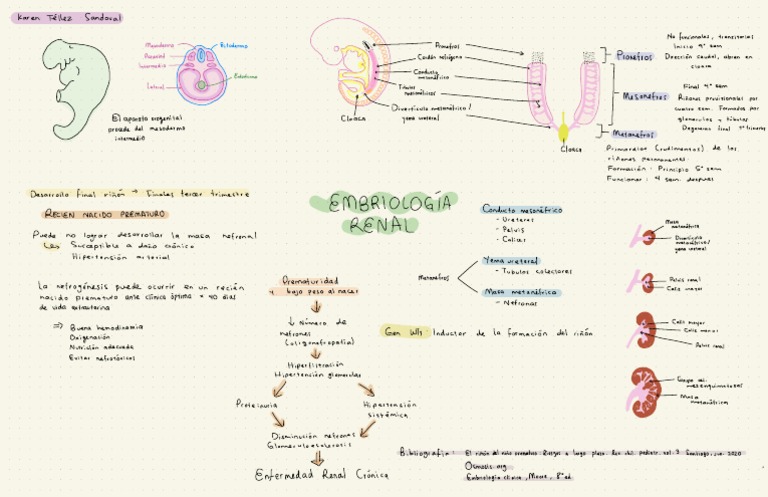 Karen Téllez Sandoval
Mesodermo
Paraxial
Intermedio
Lateral
Ectodermo
Endodermo
El aparato urogenital
procede del mesodermo
intermedio
Pronefros
Cordón nefrógeno
Conducto
mesonéfrico
Túbulos
mesonéfricos
Divertículo metanéfrico /
yema ureteral
Cloaca
Cloaca
Pronefros
No funcionales, transitorios
Inicio 4° sem
Dirección caudal, abren en
cloaca
Mesonefros
Final 4° sem
Riñones provisionales por
cuatro sem. Formados por
glomérulos y túbulos
Degeneran final 1° trimestre
Metanefros
Primordios (rudimentos) de los
riñones permanentes.
Formación: Principio 5° sem
Funcionar: 4 sem. después
Desarrollo final riñón → Finales tercer trimestre
RECIEN NACIDO PREMATURO
Puede no lograr desarrollar la masa nefronal
Susceptible a daño crónico
Hipertensión arterial
La nefrogénesis puede ocurrir en un recién
nacido prematuro ante clínica óptima x 40 días
de vida extrauterina
⇒ Buena hemodinamia
Oxigenación
Nutrición adecuada
Evitar nefrotóxicos
EMBRIOLOGÍA
RENAL
Prematuridad
y bajo peso al nacer
↓ Número de
nefrones
(oligonefropatía)
Hiperfiltración
Hipertensión glomerular
Proteinuria
Hipertensión
sistémica
Disminución nefrones
Glomeruloesclerosis
Enfermedad Renal Crónica
Conducto mesonéfrico
- Ureteres
- Pelvis
- Calices
Metanefros
Yema ureteral
- Túbulos colectores
Masa metanéfrica
- Nefronas
Gen Wt1: Inductor de la formación del riñón.
Masa
metanéfrica
Divertículo
metanéfrico /
yema ureteral
Pelvis renal
Caliz mayor
Caliz mayor
Caliz menor
Pelvis renal
Masa
metanéfrica
Bibliografía: El riñón del niño prematuro. Riesgos a largo plazo. Rev. chil. pediatr. vol. 3 Santiago, jun. 2020
Osmosis.org
Embriología clínica, Moore, 8° ed